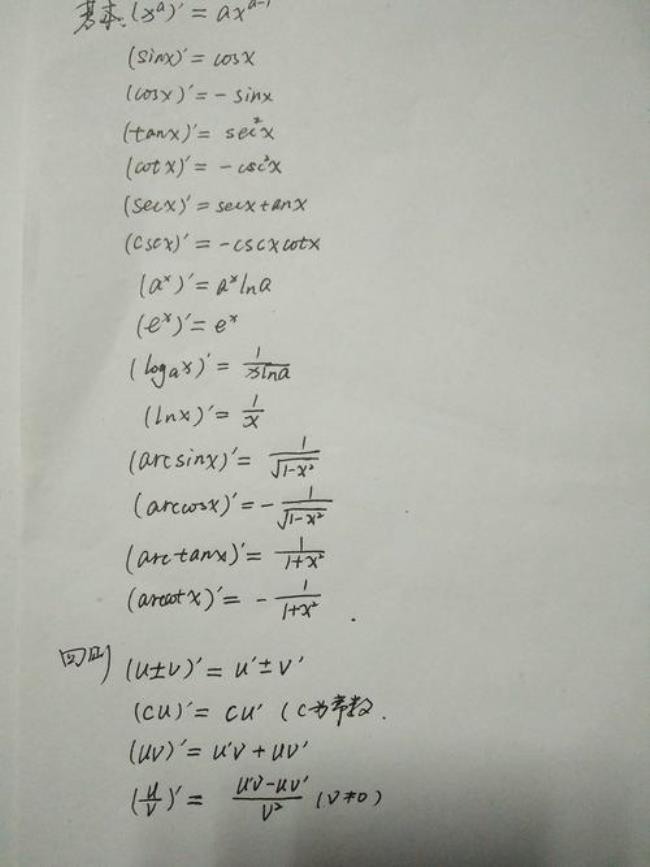 基本: (xᵃ)' = axᵃ⁻¹
(sinx)' = cosx
(cosx)' = - sinx
(tanx)' = sec²x
(cotx)' = - csc²x
(secx)' = secxtanx
(cscx)' = -cscxcotx
(aˣ)' = aˣlna
(eˣ)' = eˣ
(logₐx)' = 1/xlna
(lnx)' = 1/x
(arcsinx)' = 1/√1-x²
(arccosx)' = - 1/√1-x²
(arctanx)' = 1/1+x²
(arccotx)' = - 1/1+x²
四则 (u±v)' = u'±v'
(cu)' = cu' (c为常数.
(uv)' = u'v + uv'
(u/v)' = u'v-uv'/v² (v≠0)